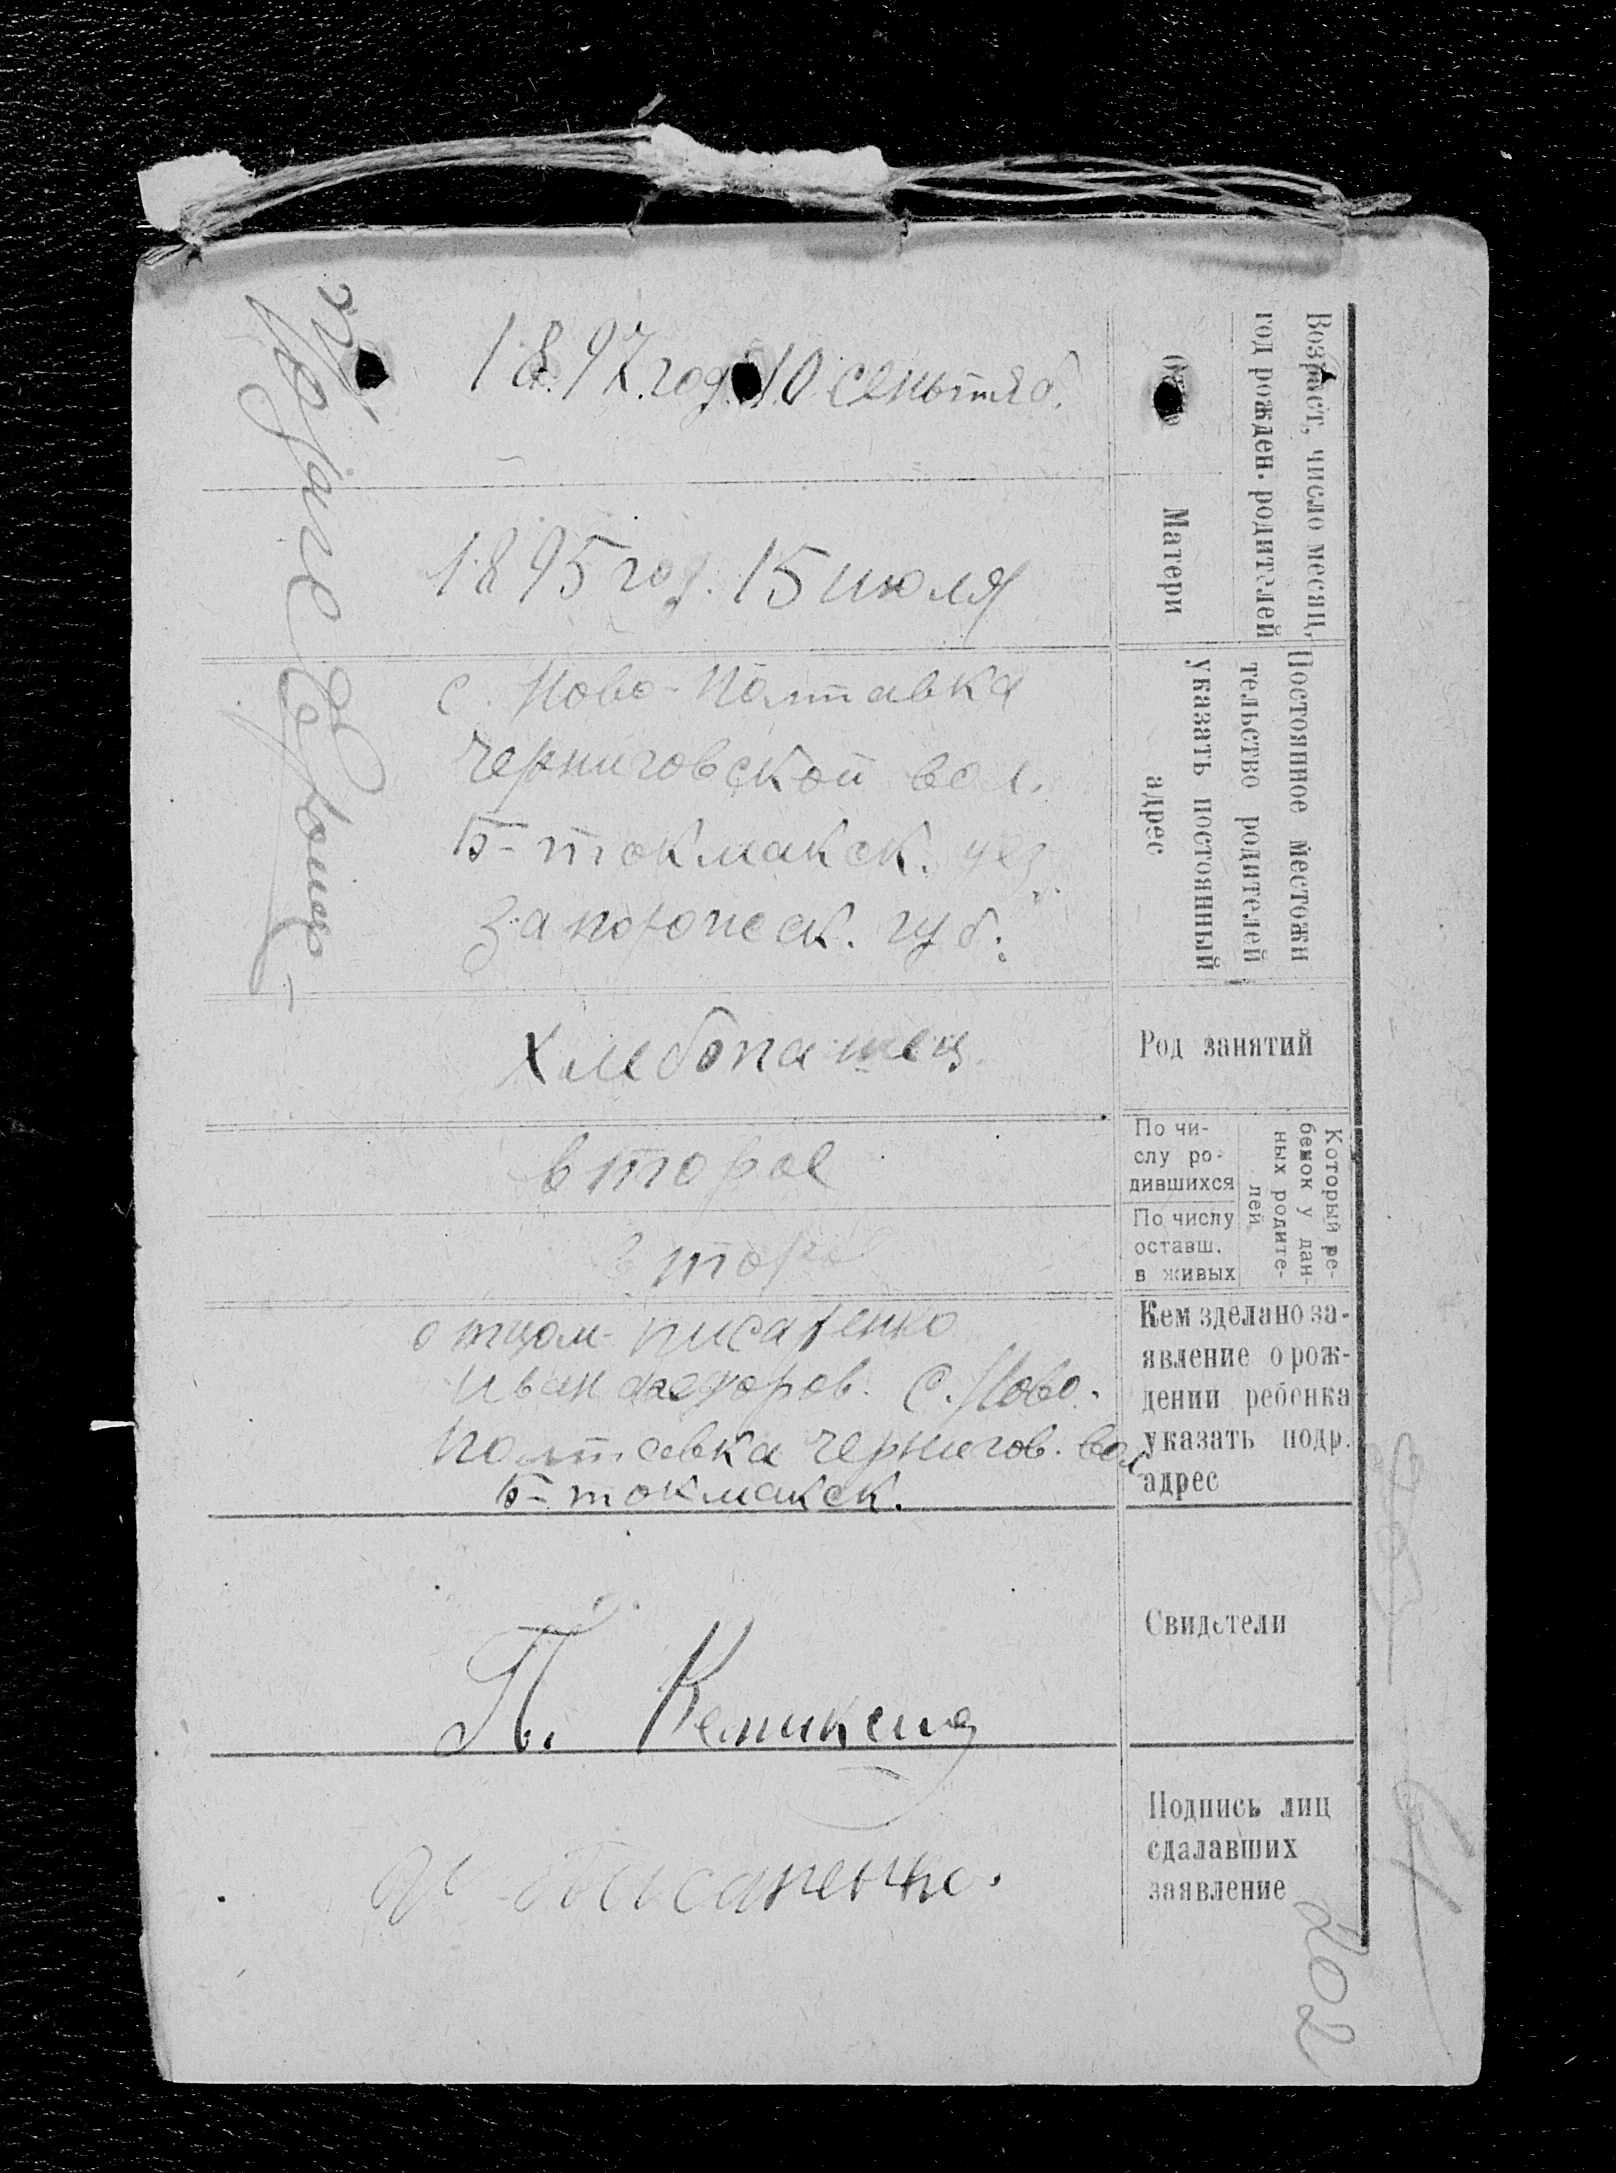 Возраст, число месяц,
год рожден. родителей
Матери
1897 год 10 сеньтяб.
1895 год. 15 июля
Постоянное местожи
тельство родителей
указать постоянный
адрес
с. Ново-Полтавка
черниговской вол.
Б-токмакск. уез.
Запорожск. губ.
Род занятий
Хлебопашец
Который ре-
бенок у дан-
ных родите-
лей
По чи-
слу ро-
дившихся
второе
По числу
оставш.
в живых
второе
Кем зделано за-
явление о рож-
дении ребенка
указать подр.
адрес
отцом-писаренко
Иван федоров. с. Ново.
Полтавка чернигов. вол
Б-токмакск.
Свидетели
П.
Подпись лиц
сдалавших
заявление
И Писаренко.
202